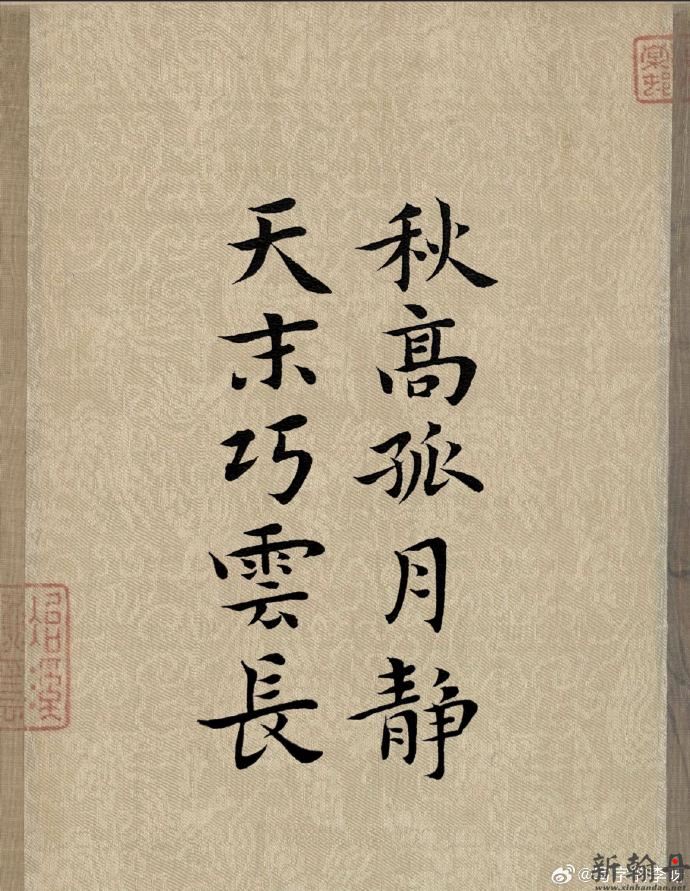 秋高孤月静
天末巧雲長
新翰丹
www.xinhandan.net